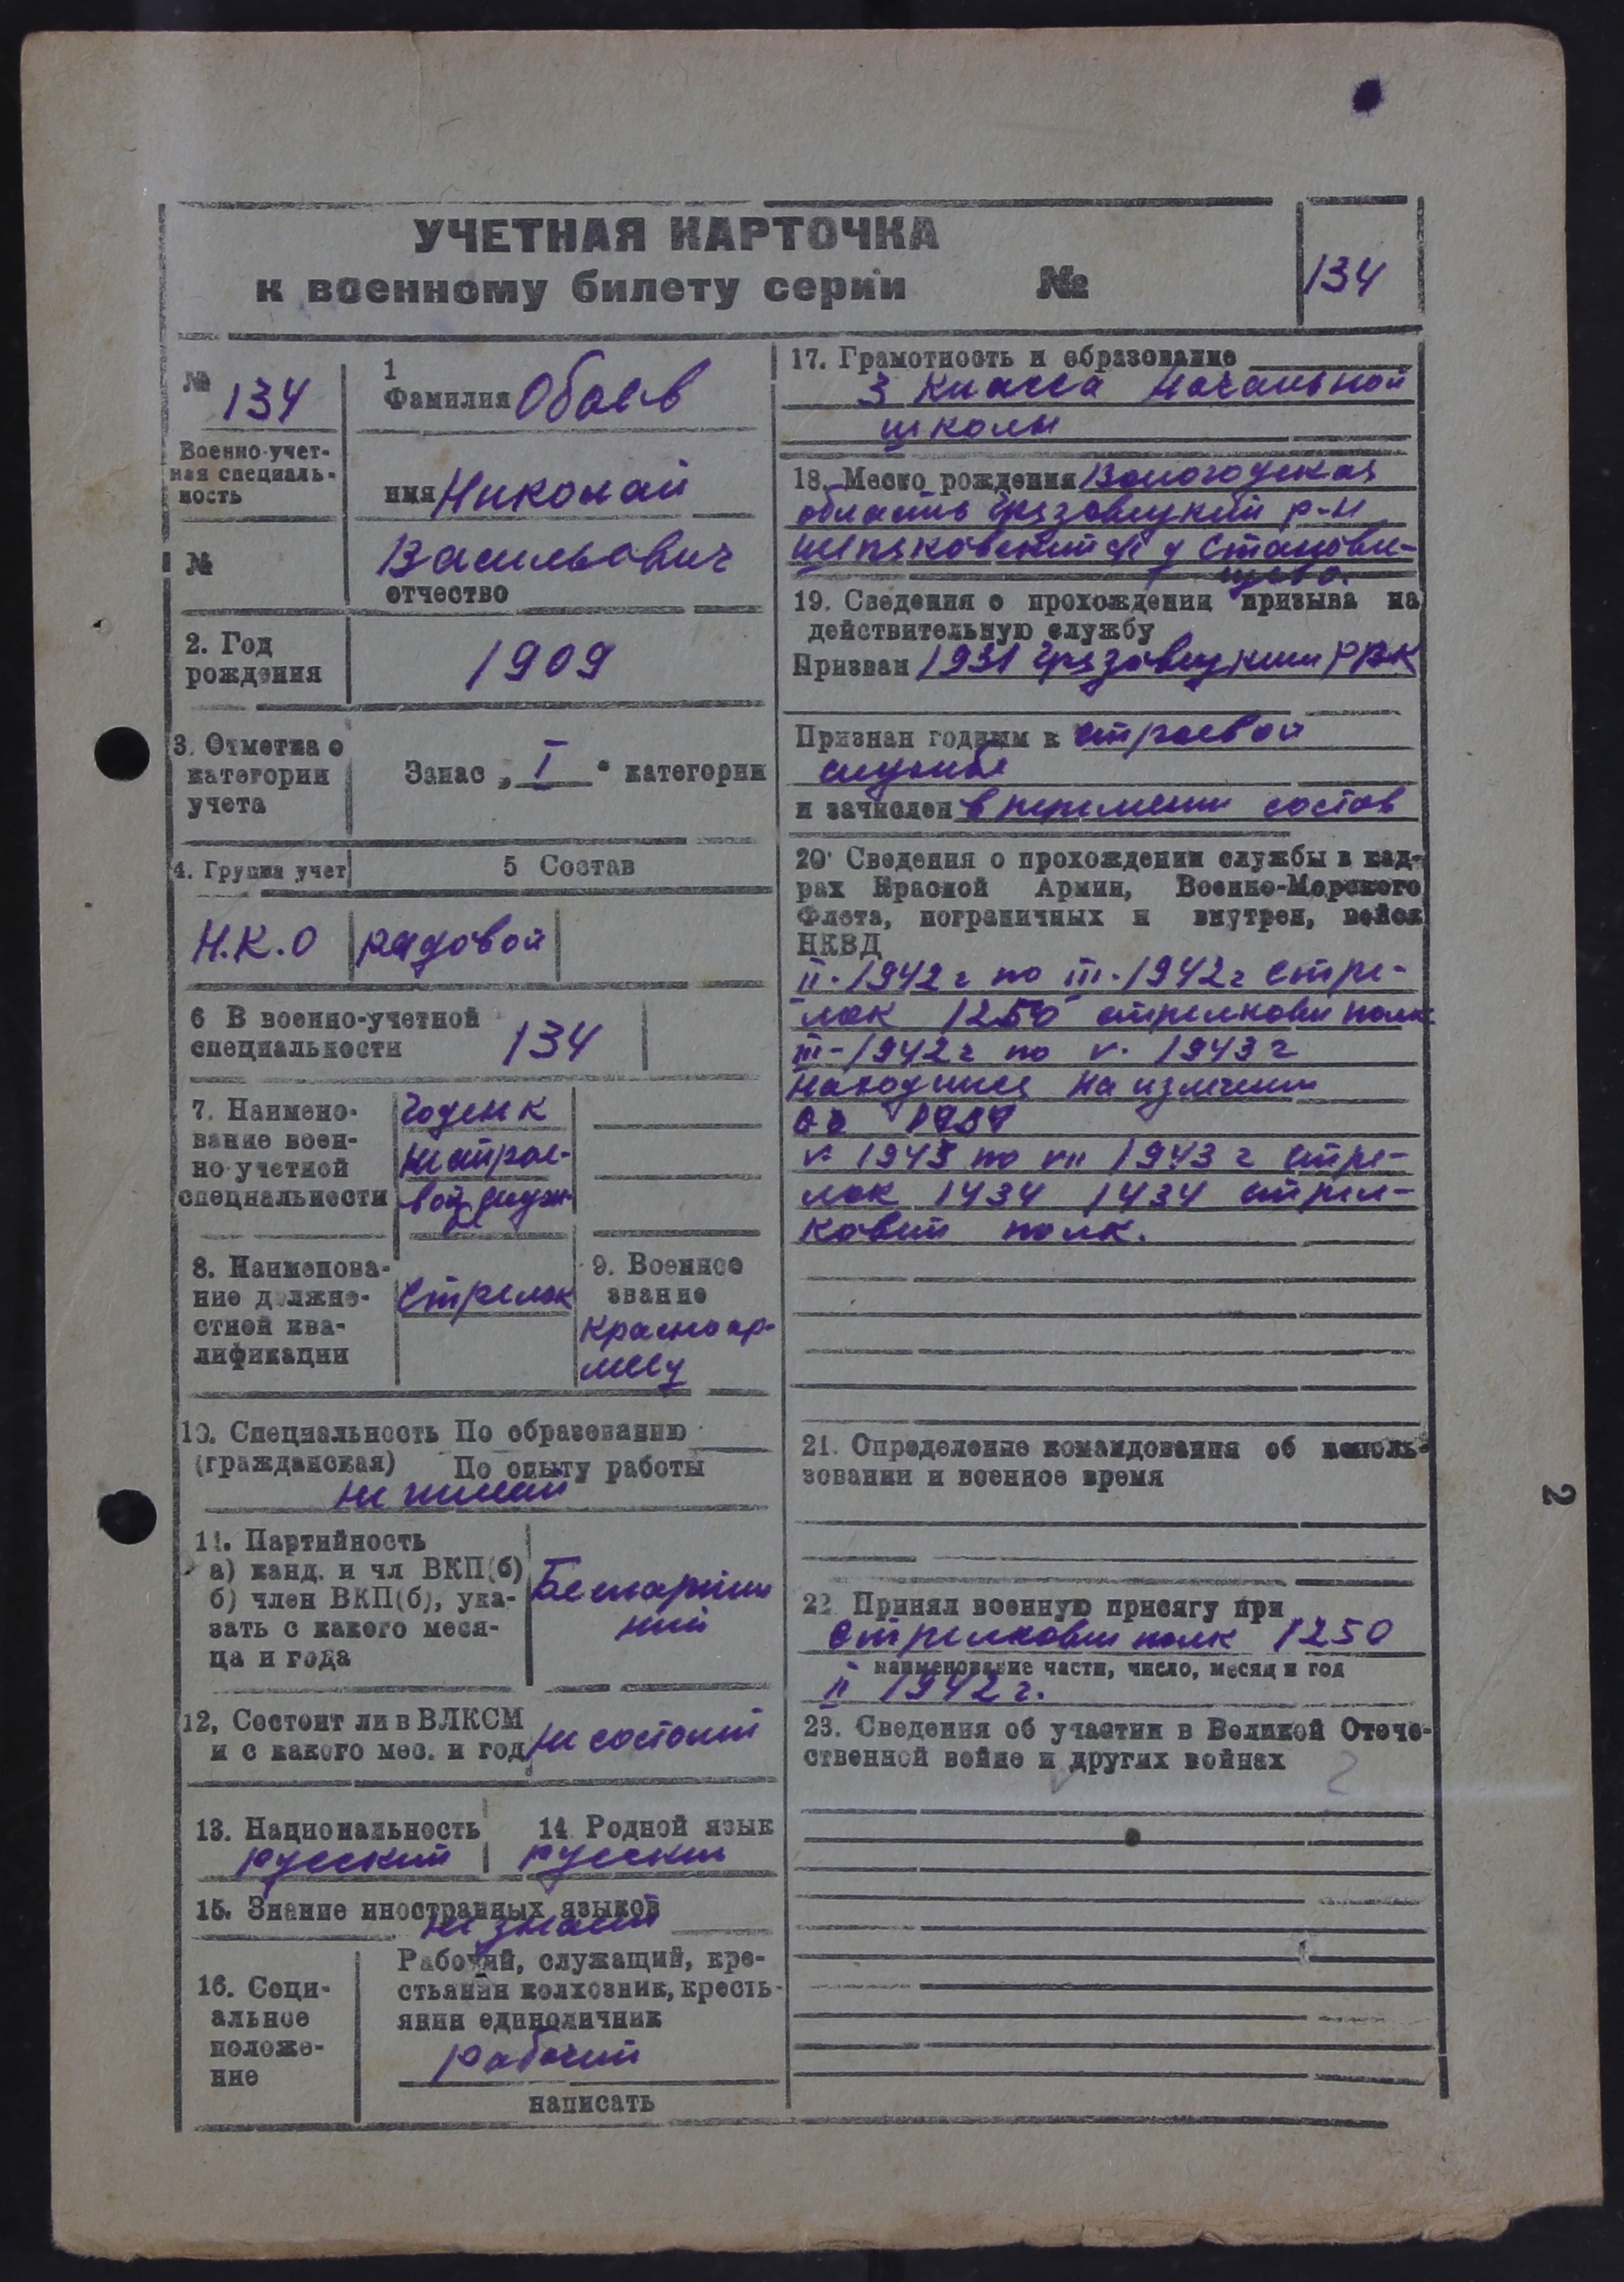 УЧЕТНАЯ КАРТОЧКА
к военному билету серии №
134
№ 134
Военно-учет-
ная специаль-
ность
№
1
Фамилия Обаев
имя Николай
Васильевич
отчество
2. Год
рождения
1909
3. Отметка о
категории
учета
Запас „ I " категории
4. Группа учет
5 Состав
Н.К.О
рядовой
6 В военно-учетной
специальности
134
7. Наимено-
вание воен-
но-учетной
специальности
Годен к
нестрое-
вой служ
8. Наименова-
ние должно-
стной ква-
лификации
Стрелок
9. Военное
звание
Красноар-
меец
10. Специальность По образованию
(гражданская) По опыту работы
не имеет
11. Партийность
а) канд. и чл ВКП(б)
б) член ВКП(б), ука-
зать с какого меся-
ца и года
Беспартий
ный
12, Состоит ли в ВЛКСМ
и с какого мес. и год
не состоит
13. Национальность
русский
14 Родной язык
русский
15. Знание иностранных языков
не знает
16. Соци-
альное
положе-
ние
Рабочий, служащий, кре-
стьянин колхозник, кресть-
янин единоличник
рабочий
написать
17. Грамотность и образование
3 класса начальной
школы
18. Место рождения Вологодская
область Грязовецкий р-н
с д Станови-
щево.
19. Сведения о прохождении призыва на
действительную службу
Призван 1931 Грязовецким РВК
Признан годным к строевой
службе
и зачислен в перемен состав
20. Сведения о прохождении службы в кад-
рах Красной Армии, Военно-Морского
Флота, пограничных и внутрен, войск
НКВД
II-1942 г по III-1942 г стре-
лок 1250 стрелковый полк
III-1942 г по V. 1943 г
находился на излечении
V 1943 по VII 1943 г стре-
лок 1434 1434 стрел-
ковый полк.
21. Определение командования об исполь-
зовании и военное время
22 Принял военную присягу при
Стрелковый полк 1250
наименование части, число, месяц и год
II 1942 г.
23. Сведения об участии в Великой Отече-
ственной войне и других войнах
2